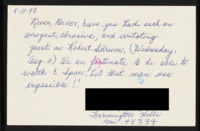 8-11-93
Never, Never, have you had such an
arrogant, abrasive, and irritating
guest as Robert Shrum. (Wednesday,
Aug. 11) We are fortunate to be able to
watch C Span, but that man was
impossible!!
Farmington Hills
MI 48334